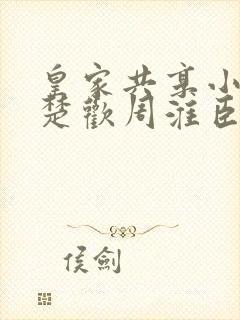 皇家共享小
楚歡周淮臣
侯劍